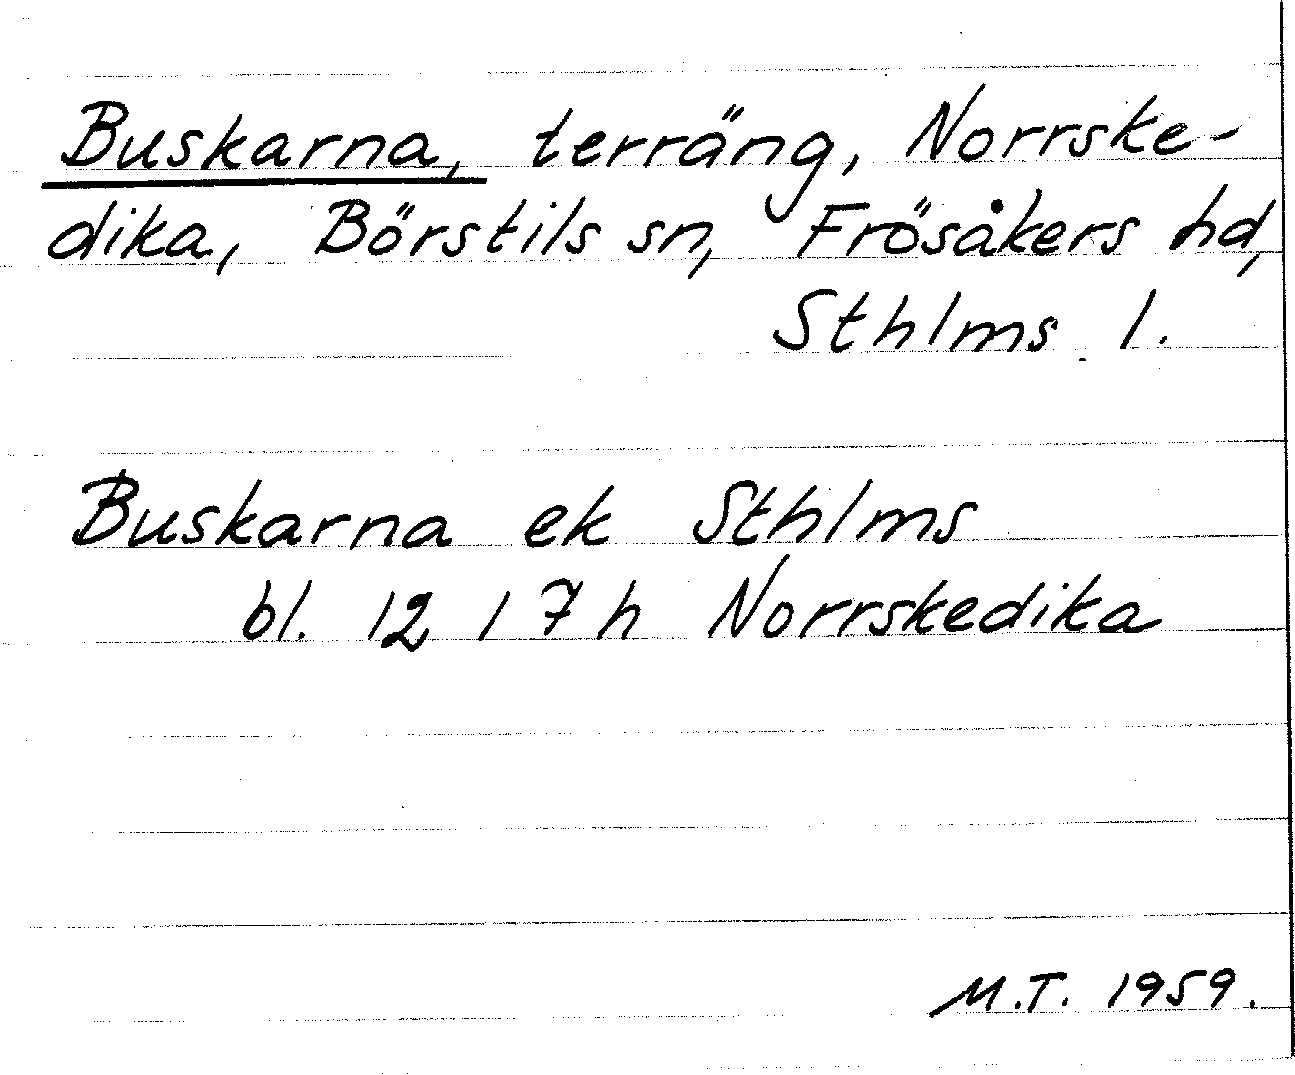 Buskarna, terräng, Norrske-
dika, Börstils sn, Frösåkers hd,
Sthlms l.
Buskarna ek Sthlms
bl. 12 I 7 h Norrskedika
M.T. 1959.